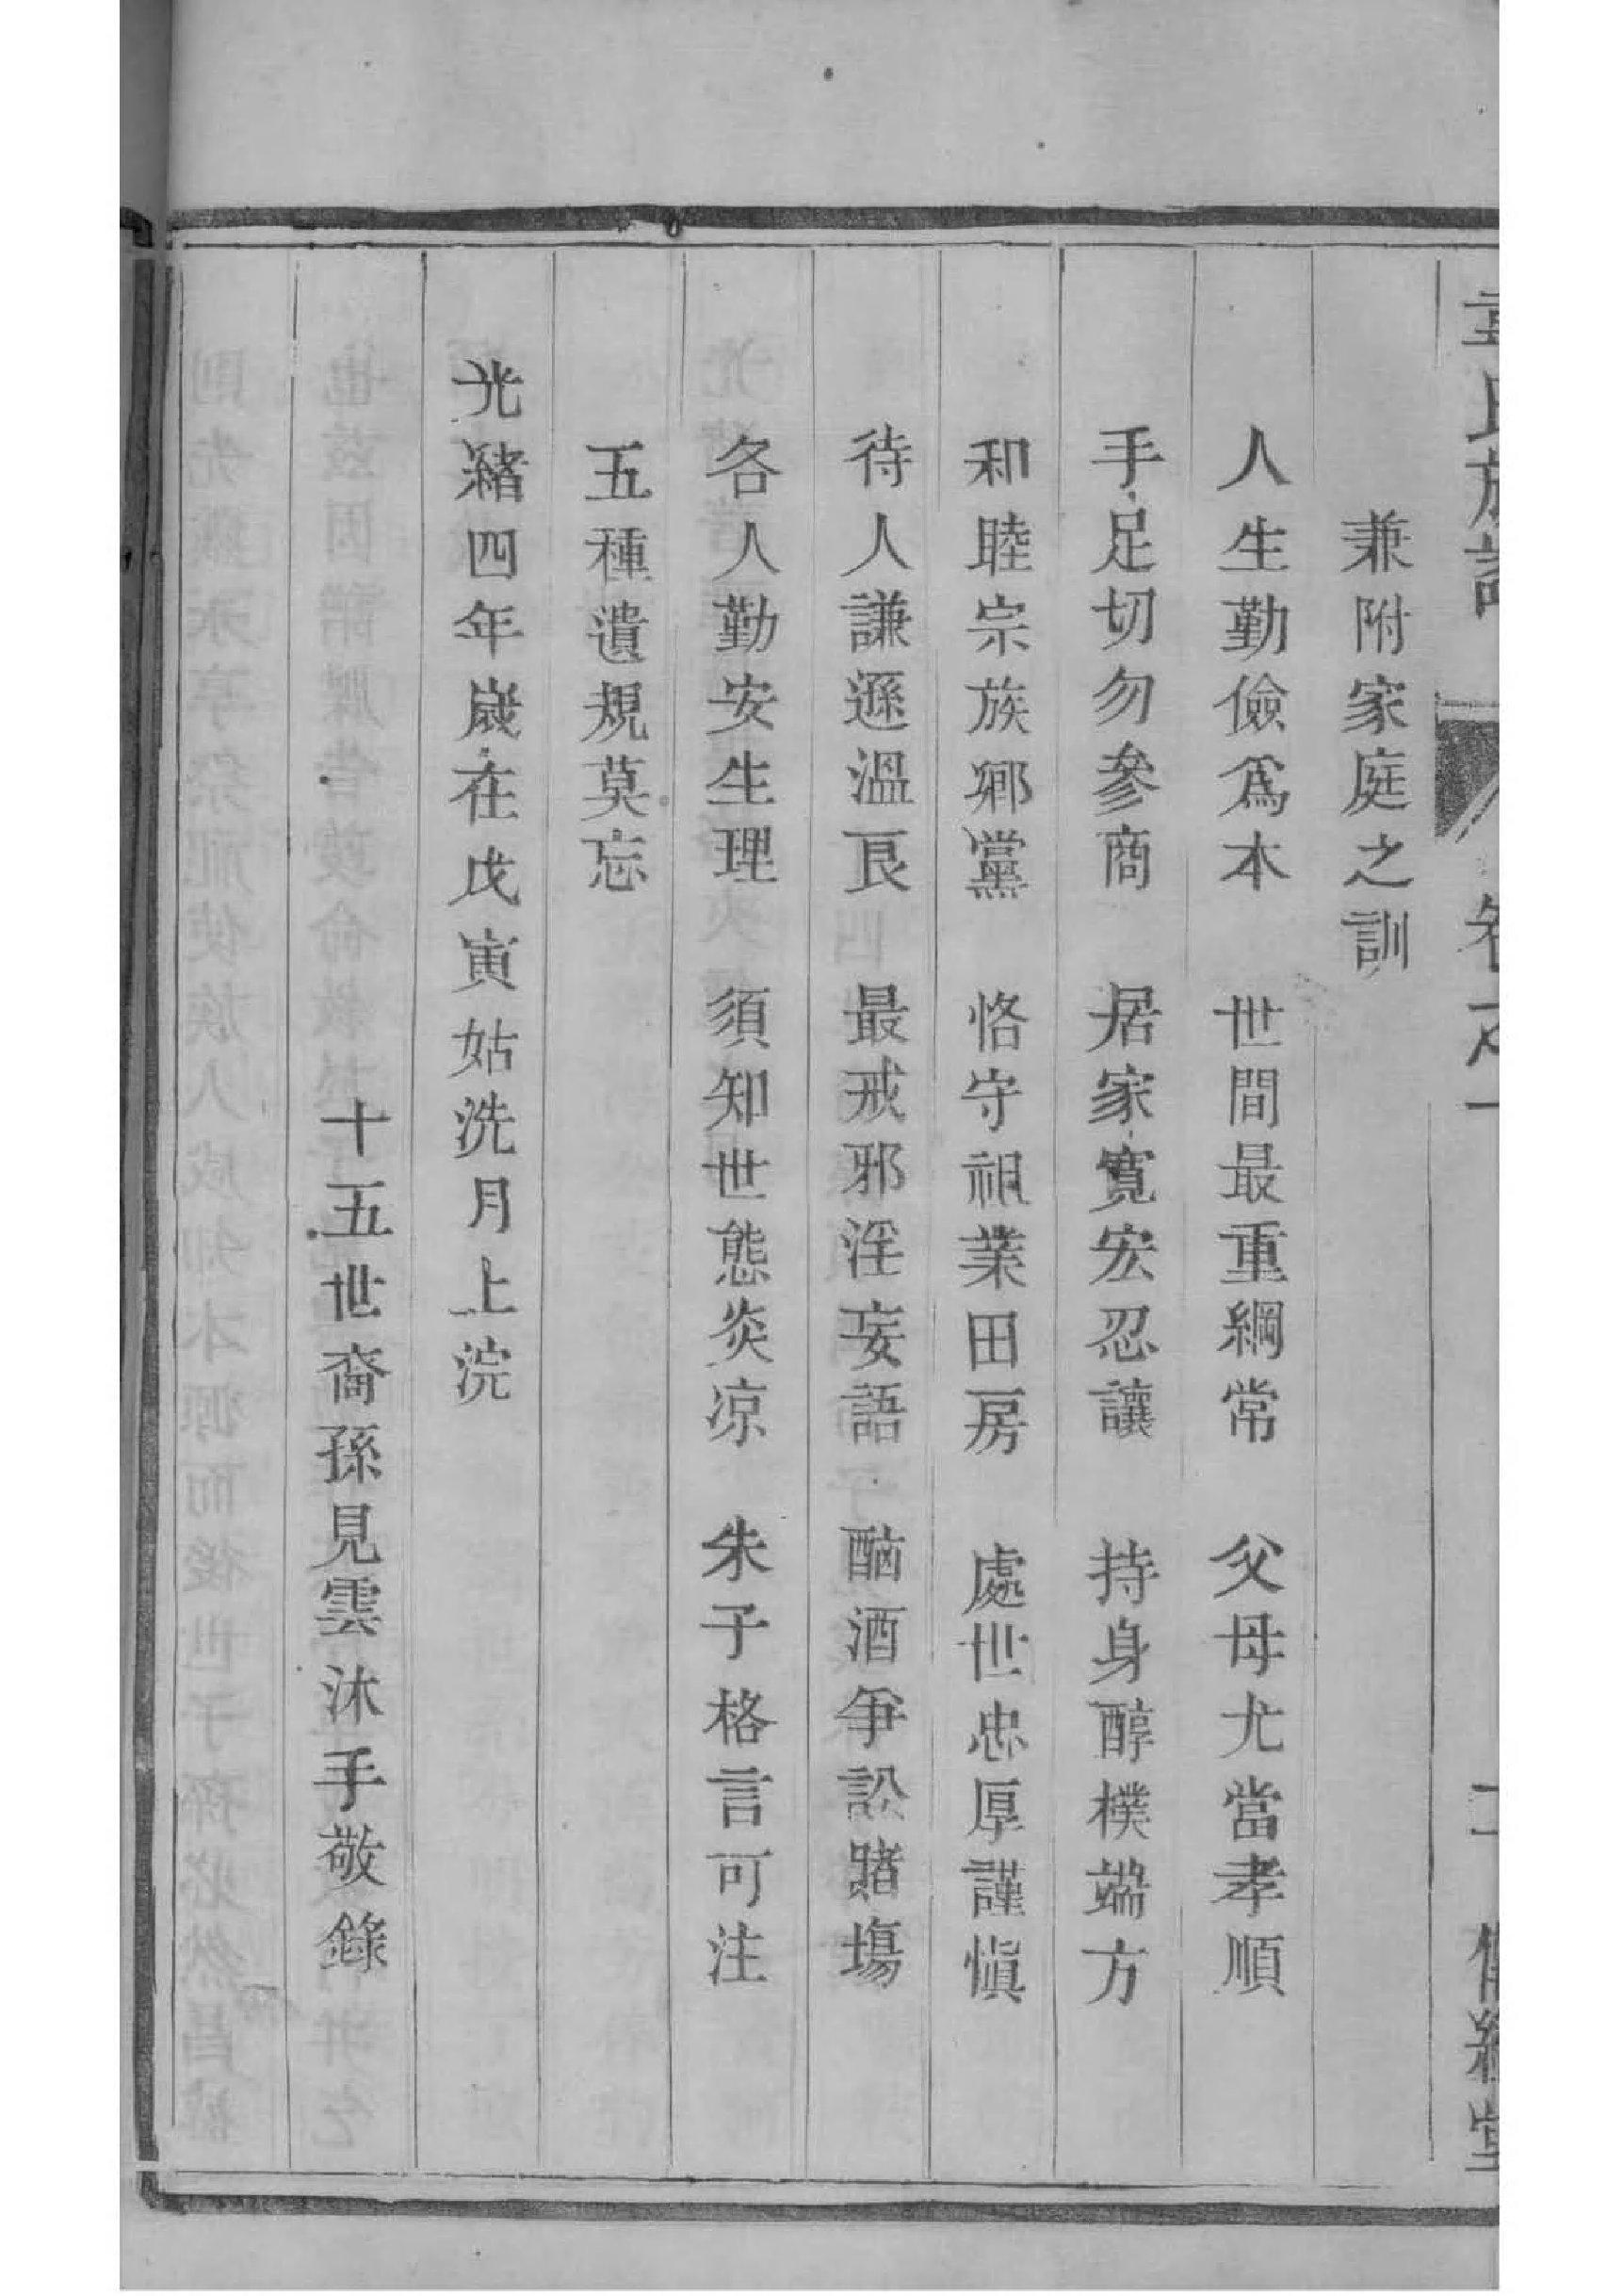 氏族
卷之一
兼附家庭之訓
人生勤儉爲本　世間最重綱常　父母尤當孝順
手足切勿參商　居家寬宏忍讓　持身醇樸端方
和睦宗族鄉黨　恪守祖業田房　處世忠厚謹愼
待人謙遜溫良　最戒邪淫妄語　酗酒爭訟賭場
各人勤安生理　須知世態炎凉　朱子格言可注
五種遺規莫忘
光緒四年歲在戊寅姑洗月上浣
十五世裔孫見雲沐手敬錄